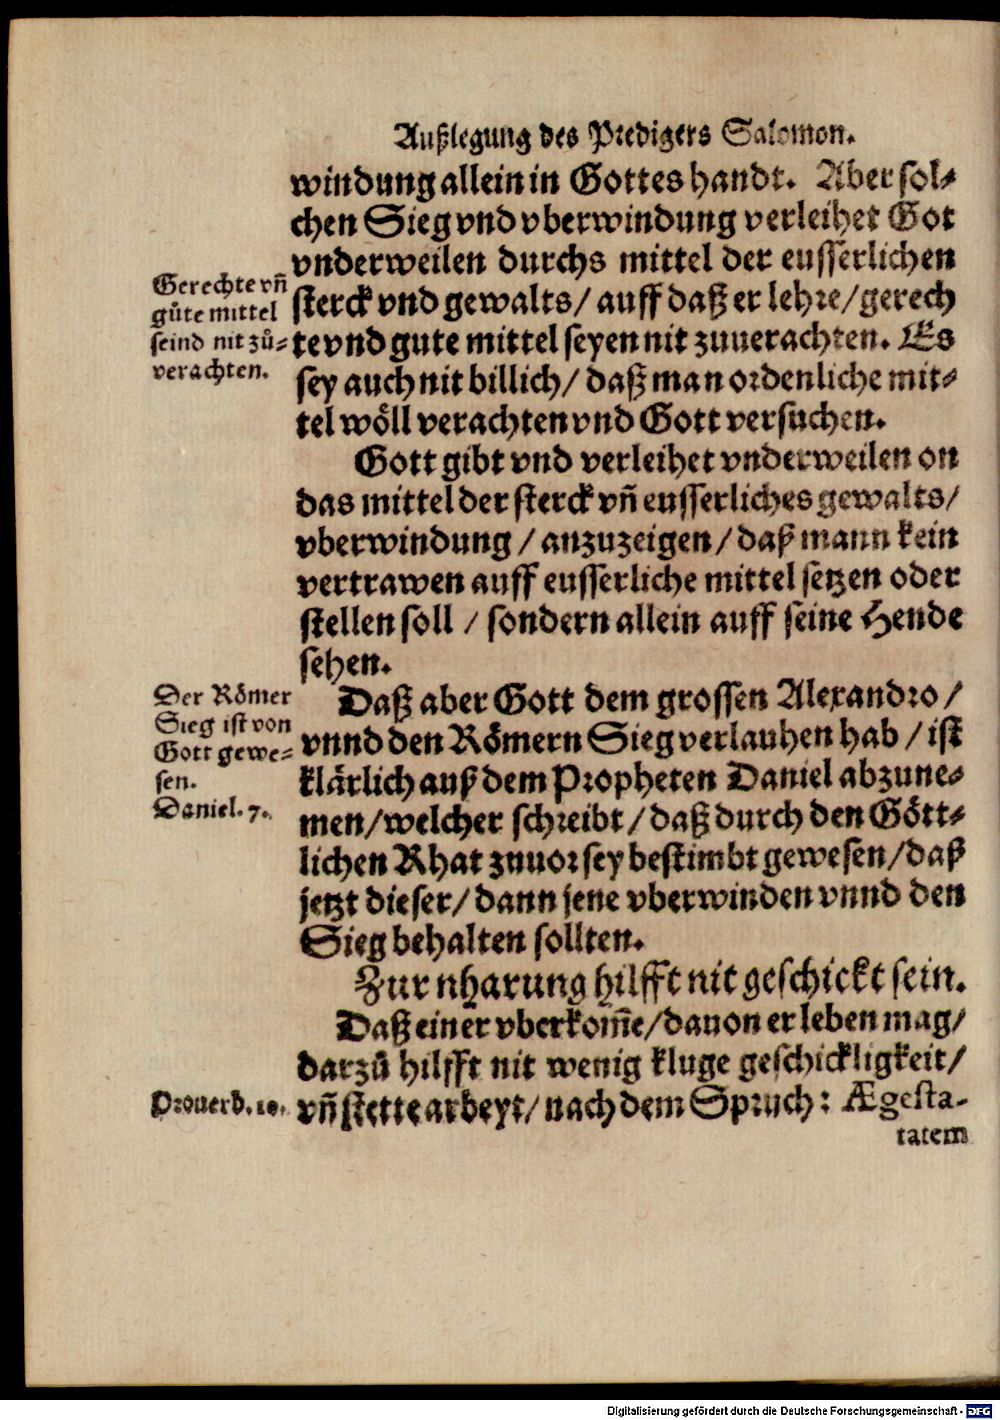 Außlegung des Predigers Salomon.
windung allein in Gottes handt. Aber sol⸗
chen Sieg vnd vberwindung verleihet Got
vnderweilen durchs mittel der eusserlichen
sterck vnd gewalts/ auff daß er lehre/gerech
te vnd gute mittel seyen nit zuuerachten. Es
sey auch nit billich/ daß man ordenliche mit⸗
tel wöll verachten vnd Gott versuchen.
Gerechte vñ
gůte mittel
seind nit zů⸗
verachten.
Gott gibt vnd verleihet vnderweilen on
das mittel der sterck vñ eusserliches gewalts/
vberwindung / anzuzeigen / daß mann kein
vertrawen auff eusserliche mittel setzen oder
stellen soll / sondern allein auff seine Hende
sehen.
Daß aber Gott dem grossen Alexandro /
vnnd den Römern Sieg verlauhen hab / ist
klärlich auß dem Propheten Daniel abzune⸗
men/welcher schreibt / daß durch den Gött⸗
lichen Rhat zuuor sey bestimbt gewesen/daß
jetzt dieser/ dann jene vberwinden vnnd den
Sieg behalten sollten.
Der Römer
Sieg ist von
Gott gewe⸗
sen.
Daniel. 7.
Zur nharung hilfft nit geschickt sein.
Daß einer vberkom̃e/dauon er leben mag/
darzů hilfft nit wenig kluge geschickligkeit/
vñ stette arbeyt/ nach dem Spruch: Ægesta-
Prouerb. 10.
tatem
Digitalisierung gefördert durch die Deutsche Forschungsgemeinschaft - DFG